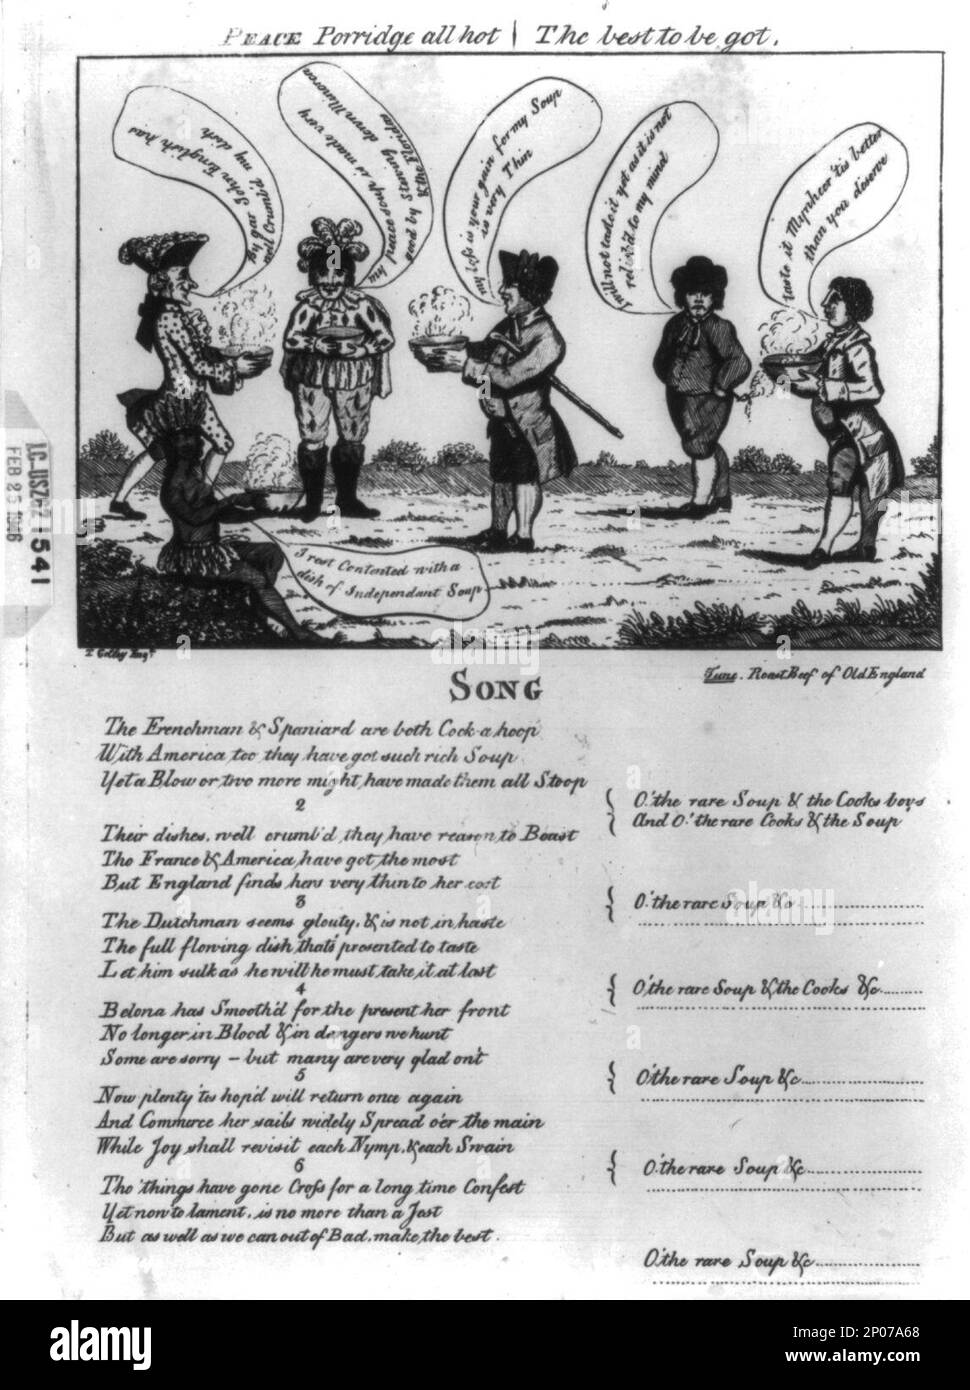 PEACE Porridge all hot | The best to be got.
by gar John English has
well Crumb'd my dish
my peace soup is made very
good by Stewing down Minorca
& the Floridas
my loss is your gain for my Soup
is very Thin
I will not taste it yet as it is not
relish'd to my mind
taste it Mynheer 'tis better
than you deserve
I rest Contented with a
dish of Independant Soup
LC-USZ62 1541
FEB 25 1966
T Colley Eng.r
Tune. Roast Beef of Old England
SONG
The Frenchman & Spaniard are both Cock a hoop
With America too, they have got such rich Soup
Yet a Blow or two more might, have made them all Stoop
O! the rare Soup & the Cooks boys
And O! the rare Cooks & the Soup
2
Their dishes, well crumb'd, they have reason to Boast
Tho France & America, have got the most
But England finds hers very thin to her cost
O! the rare Soup &c
3
The Dutchman seems glouty, & is not in haste
The full flowing dish, thats presented to taste
Let him sulk as he will he must take it at last
O! the rare Soup & the Cooks &c
4
Belona has Smooth'd for the present her front
No longer in Blood & in dangers we hunt
Some are sorry - but many are very glad on't
O'the rare Soup &c
5
Now plenty 'tis hop'd will return once again
And Commerce her sails widely Spread o'er the main
While Joy shall revisit each Nymp, & each Swain
O'the rare Soup &c
6
Tho' things have gone Cross for a long time Confest
Yet now to lament, is no more than a Jest
But as well as we can out of Bad, make the best.
O'the rare Soup &c
alamy
alamy
alamy
Image ID: 2P07A68
www.alamy.com